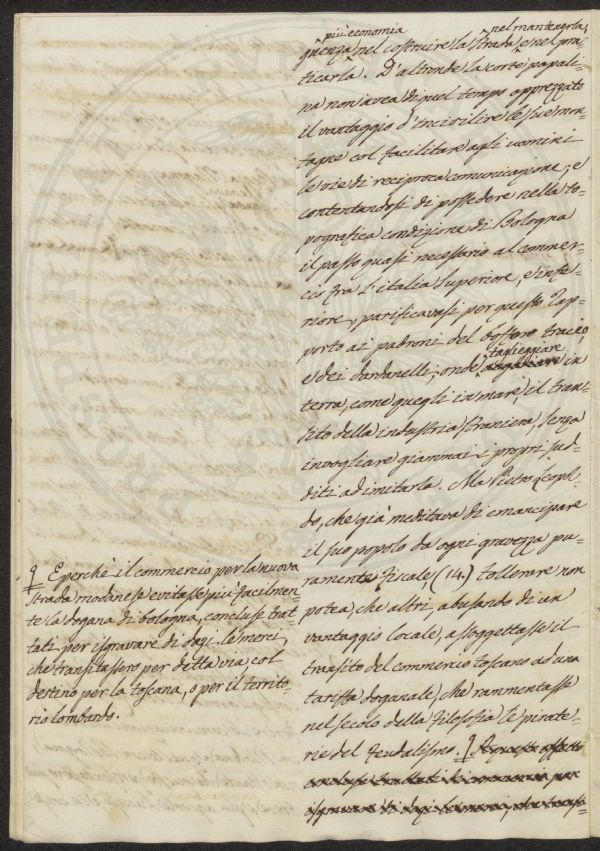 più economia nel mantenerla,
guenza nel costruire la strada e nel pra-
ticarla. D'altronde la corte papali-
na non avea di quel tempo apprezzato
il vantaggio d'incivilire le sue mon-
tagne col facilitare agli uomini
le vie di reciproca comunicazione, e
contentandosi di possedere nella to-
pografica condizione di Bologna
il passo quasi necessario al commer-
cio fra l'italia Superiore, e infe-
riore, parificavasi per questo rap-
porto ai padroni del bosforo tracio,
taglieggiare
e dei dardanelli, onde angariare in
terra, come quegli in mare, il tran-
sito della industria straniera, senza
invogliare giammai i propri sud-
diti ad imitarla. Ma Pietro Leopol-
do, che già meditava di emancipare
il suo popolo da ogni gravezza pu-
ramente fiscale (14.) tollerare non
potea, che altri, abusando di un
vantaggio locale, assoggettasse il
transito del commercio toscano ad una
tariffa doganale, che rammentasse
nel secolo della filosofia le pirate-
rie del feudalismo. q A questo effetto
concluse trattati
isgravare di dazi le merci, che transi-
q E perchè il commercio per la nuova
strada modanese evitasse più facilmen-
te la dogana di bologna, concluse trat-
tati per isgravare di dazi le merci,
che transitassero per detta via, col
destino per la toscana, o per il territo-
rio lombardo.